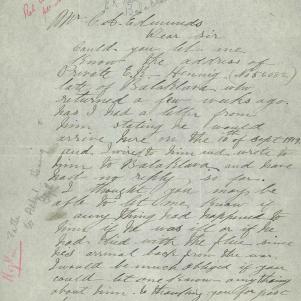 Mr C. A. Edmunds
Dear Sir
Could you let me
Know the address of
Private E. R. Hennig (No 5608?)
late of Balaklava who
returned a few weeks ago.
has I had a letter from
him stating he would
arrive here on the 10 of Sept 1919
and I wired to him and wrote to
him to Balaklava and have
had no reply so far.
I thought you may be
able to let me know if
any thing had happened to
him if he was ill or if he
had died with the flue since
his arrival back from the war.
I would be much obliged if you
could let me know anything
about him. thanking you for past